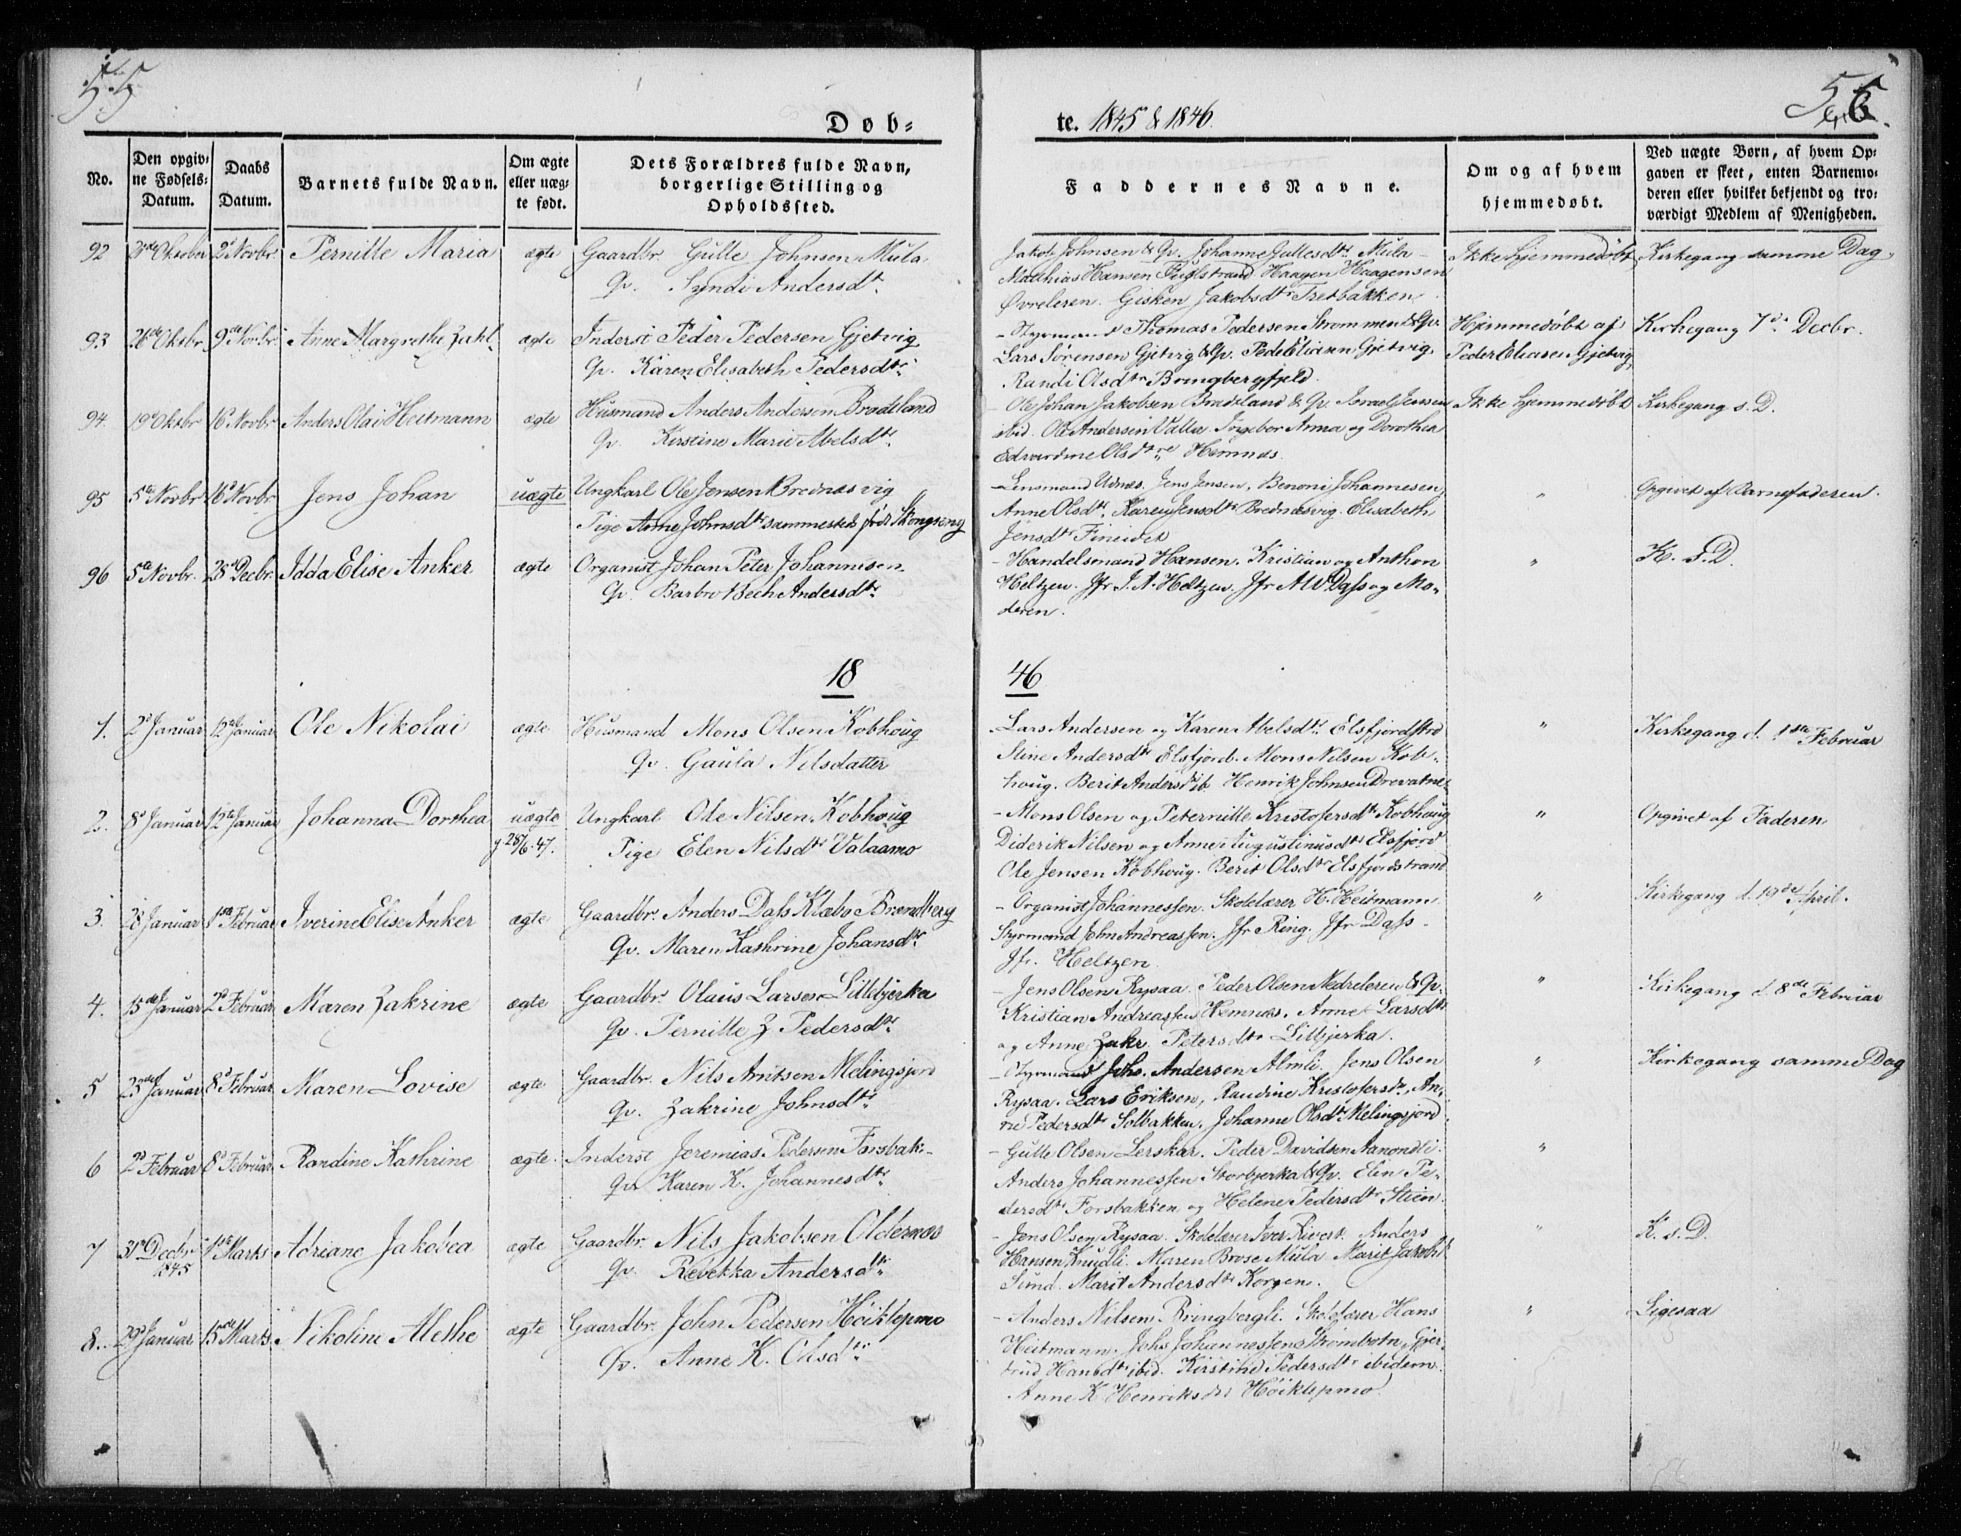 55
56
Døb-
te. 1845 & 1846.
No.
Den opgiv-
ne Fødsels-
Datum.
Daabs
Datum.
Barnets fulde Navn.
Om ægte
eller uæg-
te født.
Dets Forældres fulde Navn,
borgerlige Stilling og
Opholdssted.
Faddernes Navne.
Om og af hvem
hjemmedøbt.
Ved uægte Børn, af hvem Op-
gaven er skeet, enten Barnemo-
deren eller hvilket bekjendt og tro-
værdigt Medlem af Menigheden.
92 Oktober 2 Novbr Pernille Maria ægte Gaardbr. Gulle Johnsen Mula
Qv. Syndi Andersdtr
Jakob Johnsen & Qv. Johanne Gullesdtr Mula
Matthias Hansen Fuglstrand Haagen Haagensen
Øvreleren. Gisken Jakobsdtr Tretbakken
Ikke hjemmedøbt Kirkegang samme Dag.
93 26de Oktbr 9de Novbr Anne Margrethe Zahl ægte Inderst Peder Pedersen Gjetvig
Qv. Karen Elisabeth Pedersdtr
- Styrmand Thomas Pedersen Strømmen & Qv.
Lars Sørensen Gjetvig & Qv. Peder Eliasen Gjetvig.
Randi Olsdtr Bringbergfjeld.
Hjemmedøbt af
Peder Eliasen Gjetvig
Kirkegang 7de Decbr.
94. 19de Oktbr 16 Novbr Anders Olai Heitmann ægte Husmand Anders Andersen Brodeland
Qv. Kirstine Marie Abelsdtr
- Ole Johan Jakobsen Brodeland & Qv. Israel Jensen
ibid. Ole Andersen Valla Ingebor Anna og Dorothea
Edvardine Olsdtre Hemnes.
Ikke hjemmedøbt Kirkegang s. D.
95 5te Novbr 16de Novbr Jens Johan uægte Ungkarl Ole Jensen Brednæsvig
Pige Anne Johnsdtr sammesteds født Kongseng
- Lensmand Udnæs. Jens Jensen. Benoni Johannesen
Anne Olsdtr. Karen Jensdtr Brednæsvig. Elisabeth
Jensdtr Fineidet
" Opgivet af Barnefaderen.
96 5te Novbr. 25de Decbr. Idda Elise Anker ægte Organist Johan Peter Johannesen
Qv. Barbro Bech Andersdtr
- Handelsmand Hansen. Kristian og Anthon
Heltzen. Jfr J. A. Heltzen. Jfr A W Dass og Mo-
deren.
" K. s. D.
18 46
1. 2de Januar 12te Januar Ole Nikolai ægte Husmand Mons Olsen Kobhoug
Qv. Gaula Nilsdatter
- Lars Andersen og Karen Abelsdtr Elsfjordstrd
Stine Andersdtr Elsfjord. Mons Nilsen Kob-
houg. Berit Andersd ib. Henrik Johnsen Drevatne.
" Kirkegang d. 1ste Februar
2. 8de Januar 12te Januar Johanna Dorthea uægte Ungkarl Ole Nilsen Kobhoug
g. 28/6 47. Pige Elen Nilsdtr Valaamo
- Mons Olsen og Peternille Kristofersdtr Kobhoug
Diderik Nilsen og Anne Augustinusdtr Elsfjord
Ole Jensen Kobhoug. Berit Olsdtr Elsfjordstrand
" Opgivet af Faderen
3. 28 Januar 1ste Februar Iverine Elise Anker ægte Gaardbr. Anders Dass Klæbo Brendberg
Qv. Maren Kathrine Johansdtr
- Organist Johannessen. Skolelærer H. Heitmann
Styrmand John Andreassen. Jfr Ring. Jfr Dass.
Jfr. Heltzen.
" Kirkegang d. 19de April.
4. 15de Januar 2de Februar Maren Zakrine ægte Gaardbr. Olaus Larsen Lillbjerka
Qv. Pernille Z Pedersdtr
- Jens Olsen Rysaa. Peder Olsen Nedreleren & Qv.
Kristian Andreassen Hemnes. Anne Larsdtr
og Anne Zakr. Petersdtr Lilbjerka.
" Kirkegang d. 8de Februar
5 23de Januar 8de Februar Maren Lovise ægte Gaardbr. Nils Arntsen Melingsjord
Qv. Zakrine Johnsdtr
- Styrmand Johs. Andersen Almli. Jens Olsen
Rysaa. Lars Eriksen, Raudine Kristofersdtr, An-
ne Pedersdtr Solbakken. Johanne Olsdtr Melingsjord
" Kirkegang samme Dag
6 2de Februar 8de Februar Randine Kathrine ægte Inderst Jeremias Pedersen Forsbak-
Qv. Karen K. Johannesdtr
- Gulle Olsen Lerskar. Peder Davidsen Aanondli.
Anders Johannessen Storbjerka & Qv. Elen Pe-
dersdtr Forsbakken og Helene Pedersdtr Stien.
"
7 31te Decbr 1ste Marts Adriane Jakobea ægte Gaardbr. Nils Jakobsen Oldernæs
1845 Qv. Rebekka Andersdtr
- Jens Olsen Rysaa. Skolelærer Iver Anders
Hansen Knudli. Maren Brose Mula Marit Jakobsd
Sund. Marit Andersdtr Korgen.
" K. s. D.
8. 29de Januar 15de Marts Nikoline Alethe ægte Gaardbr. John Pedersen Høiklepmo
Qv. Anne K. Olsdtr
- Anders Nilsen Bringbergli. Skolelærer Hans
Heitmann. Johs Johannessen Strombotn. Gjer-
trud Hansdtr ibid. Kirstine Pedersdtr ibidem.
Anne K Henriksdtr Høiklepmo.
" Ligesaa